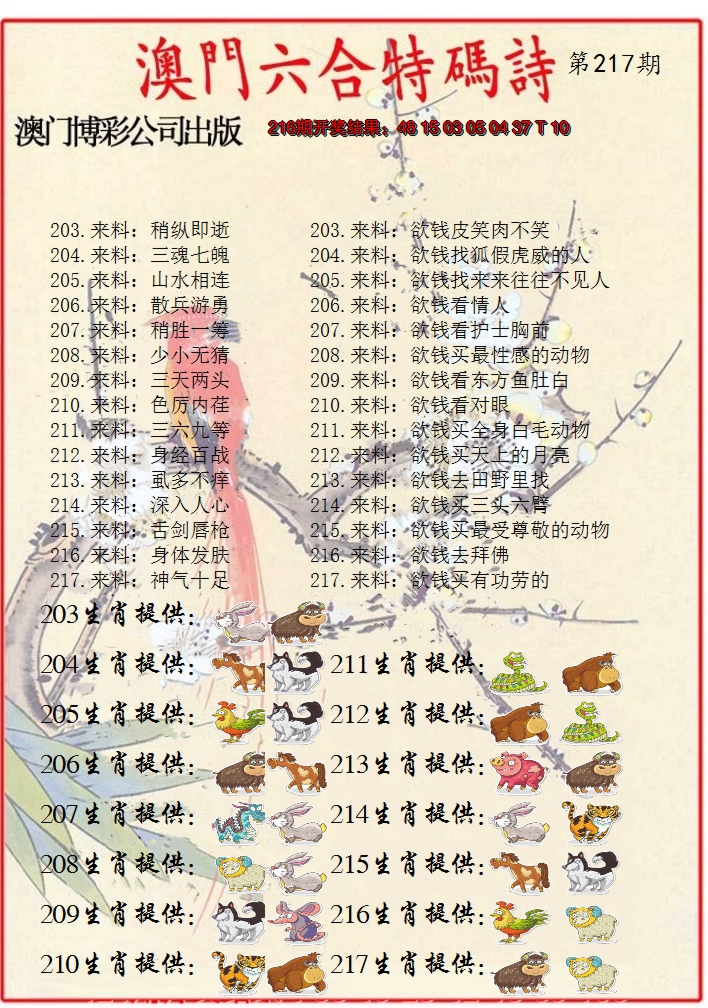 澳門六合特碼詩 第217期
澳门博彩公司出版 216期开奖结果：48 15 03 05 04 37 T 10
203.来料：稍纵即逝 203.来料：欲钱皮笑肉不笑
204.来料：三魂七魄 204.来料：欲钱找狐假虎威的人
205.来料：山水相连 205.来料：欲钱找来来往往不见人
206.来料：散兵游勇 206.来料：欲钱看情人
207.来料：稍胜一筹 207.来料：欲钱看护士胸前
208.来料：少小无猜 208.来料：欲钱买最性感的动物
209.来料：三天两头 209.来料：欲钱看东方鱼肚白
210.来料：色厉内荏 210.来料：欲钱看对眼
211.来料：三六九等 211.来料：欲钱买全身白毛动物
212.来料：身经百战 212.来料：欲钱买天上的月亮
213.来料：虱多不痒 213.来料：欲钱去田野里找
214.来料：深入人心 214.来料：欲钱买三头六臂
215.来料：舌剑唇枪 215.来料：欲钱买最受尊敬的动物
216.来料：身体发肤 216.来料：欲钱去拜佛
217.来料：神气十足 217.来料：欲钱买有功劳的
203生肖提供：
204生肖提供： 211生肖提供：
205生肖提供： 212生肖提供：
206生肖提供： 213生肖提供：
207生肖提供： 214生肖提供：
208生肖提供： 215生肖提供：
209生肖提供： 216生肖提供：
210生肖提供： 217生肖提供：